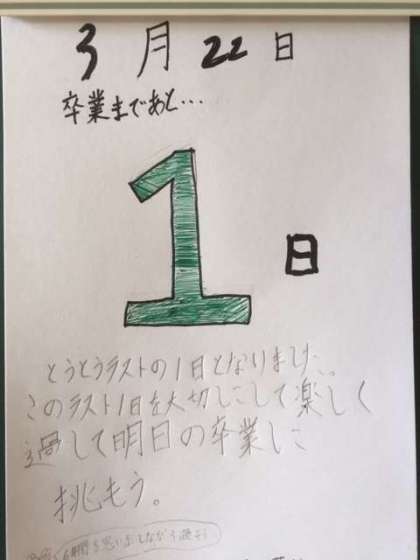 3月22日
卒業まであと…
1日
とうとうラストの1日となりました。
このラスト1日を大切にして楽しく
過して明日の卒業に
挑もう。